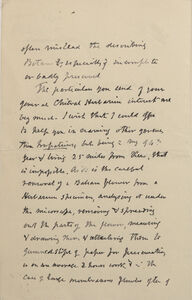 often mislead the describing
Botanist, especially if incomplete
or badly preserved
The particulars you send of your
general Clinical Herbarium interest are
beyond. I wish that I could offer
to help you in examining other genera
than Impatiens, but being in my 94th
year & living 25 miles from Kew, that
is impossible, as is the careful
removal of a Balsam flower from a
Herbarium specimen, analyzing it under
the microscope, removing & spreading
out the parts of the flower, measuring
& drawing them & attaching them to
gummed slips of paper for preservation
is on an average 2 hours work & in the
case of large membranous flowers often of